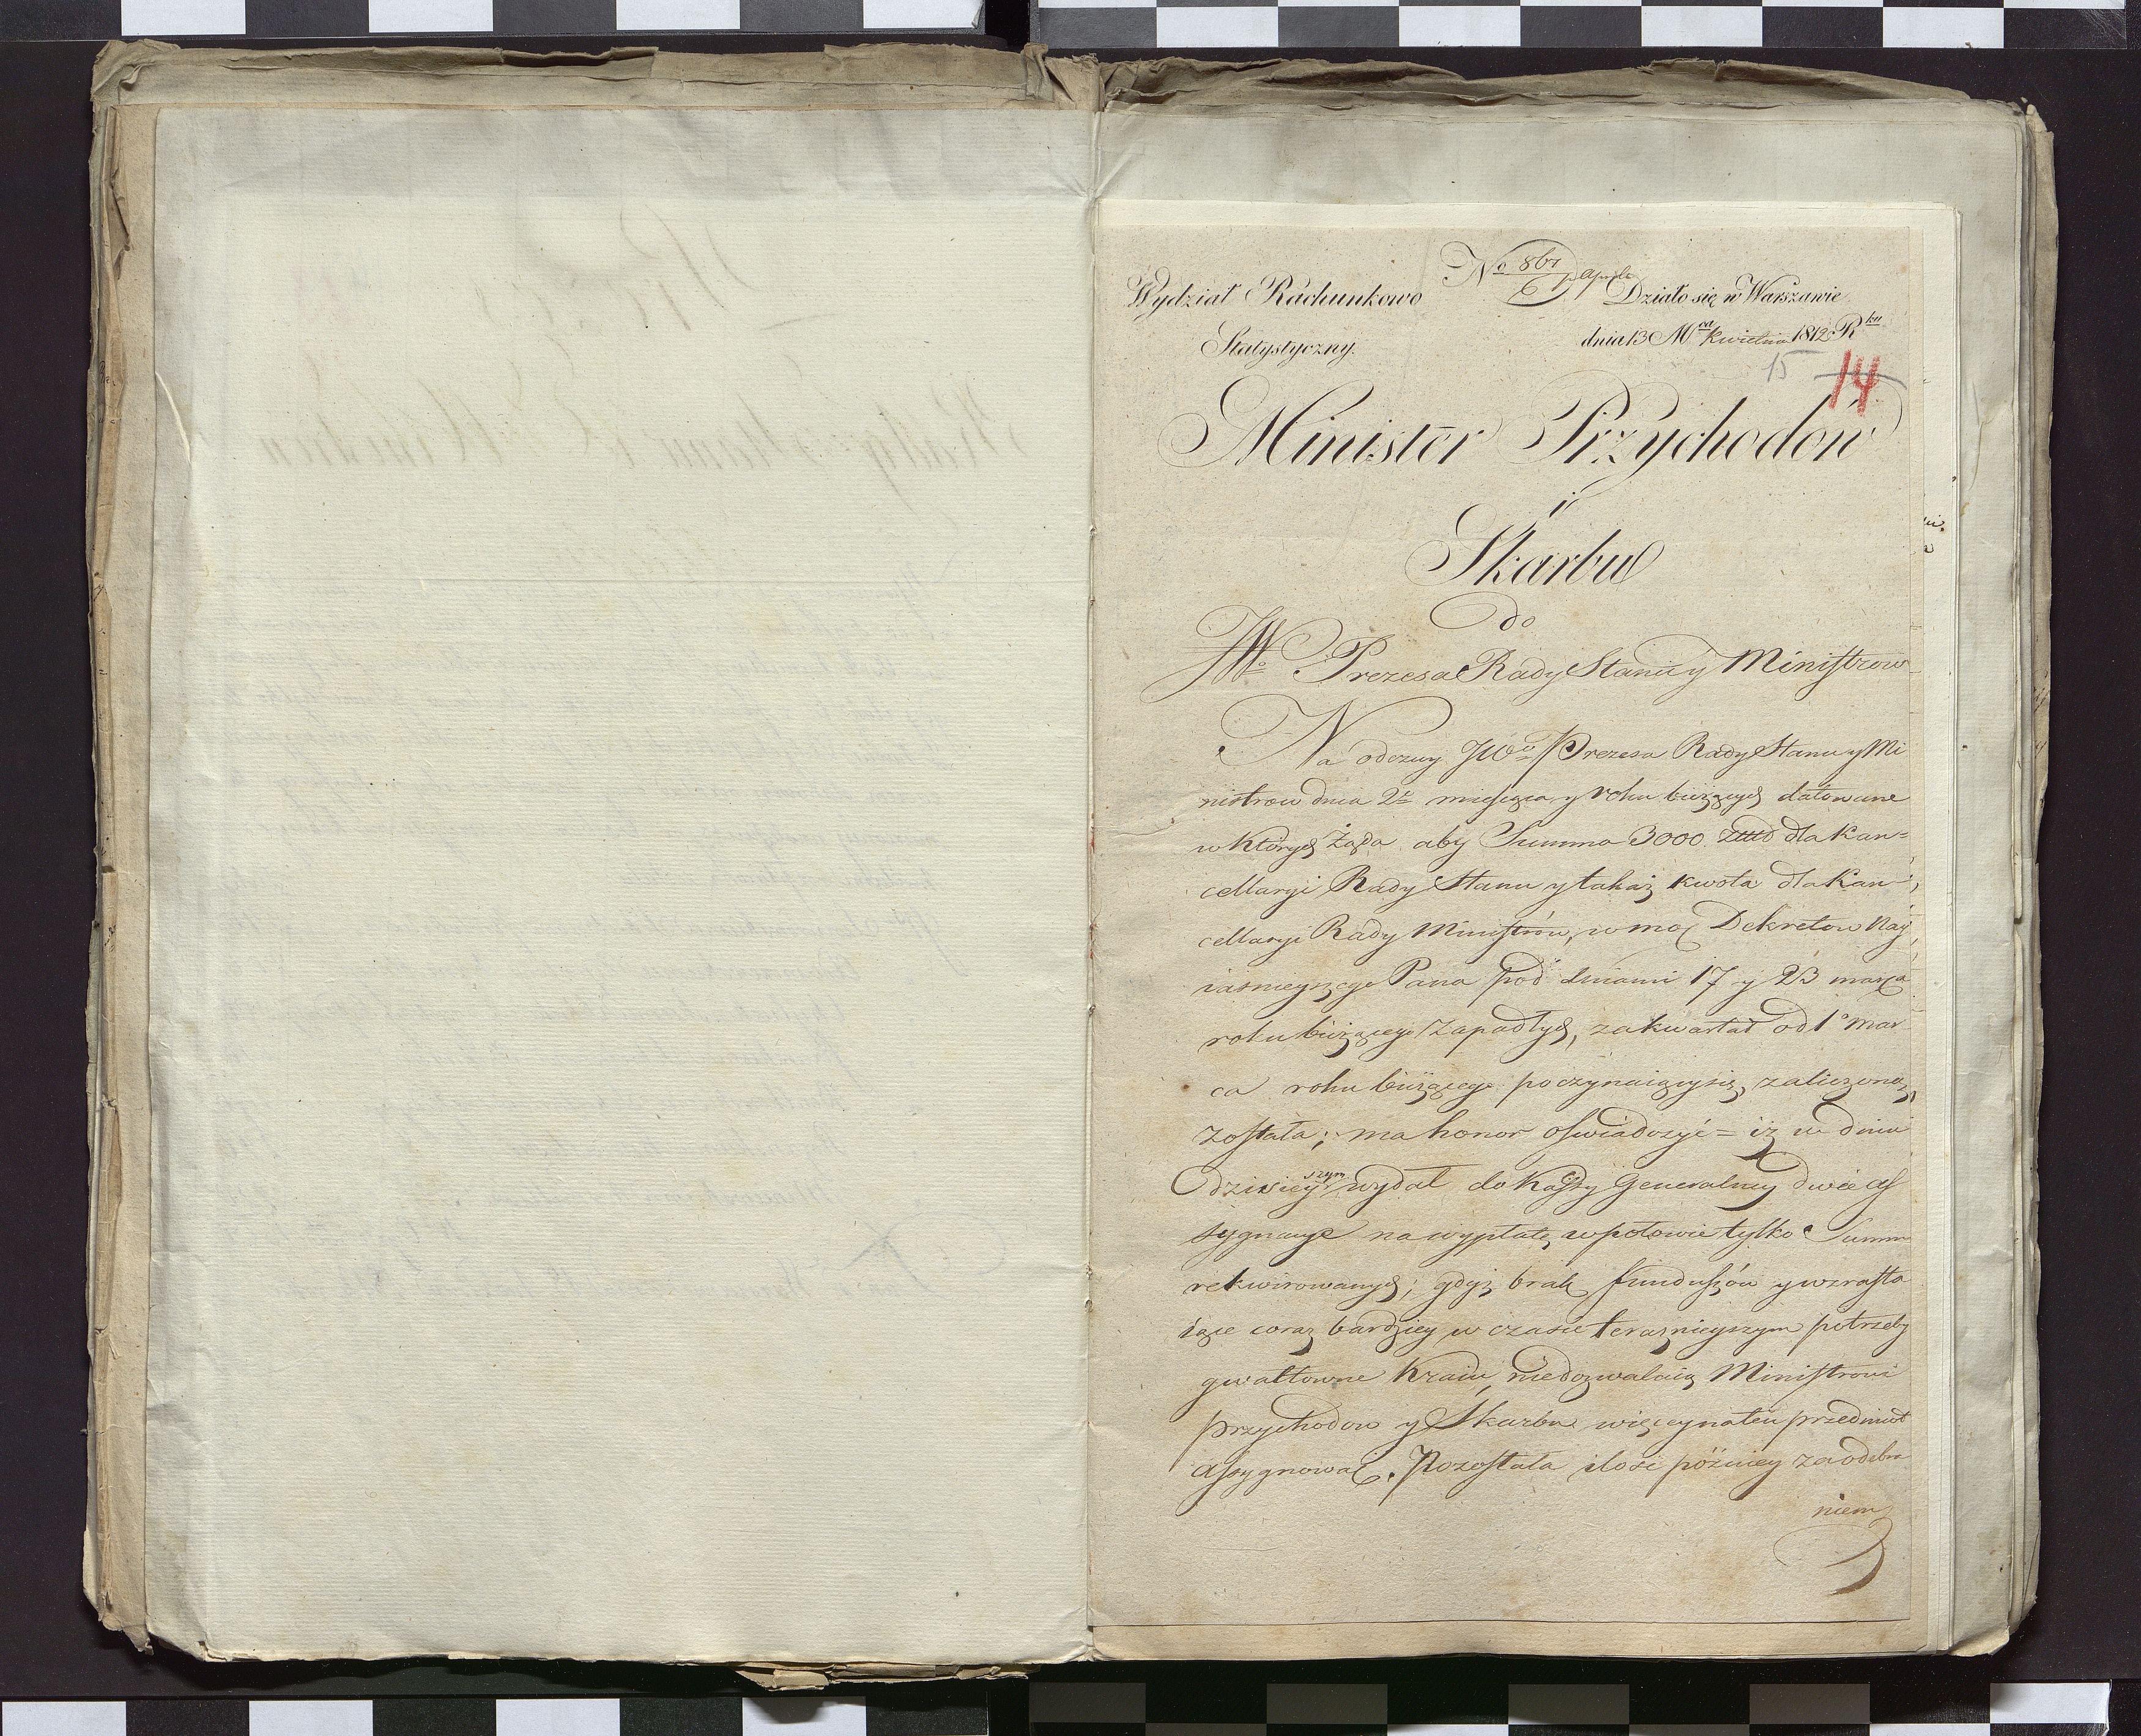 Wydział Rachunkowo
Statystyczny.
No 867
Działo się w Warszawie
dnia 13 Mca Kwietnia 1812 Rku
15 14
Minister Przychodów
i
Skarbu
do
JWo Prezesa Rady Stanu y Ministrow
Na odezwy JWo Prezesa Rady Stanu y Mi
nistrow dnia 2o miesiąca y roku bieżących datowane
w których żąda aby Summa 3000 dla Kan=
cellaryi Rady Stanu y takaż kwota dla Kan=
cellaryi Rady Ministrów, w moc Dekretow Nay
iasnieyszego Pana pod dniami 17 y 23 marca
roku bieżącego zapadłych, za kwartał od 1o mar
ca roku bieżącego poczynaiący się, zaliczona
została; ma honor oświadczyć = iż w dniu
dzisieyszym wydał do Kassy Generalney dwie as
sygnacye na wypłatę w połowie tylko Summ
rekwirowanych; gdyż brak funduszów y wzrasta
iące coraz bardziey w czasie teraznieyszym potrzeby
gwałtowne Kraiu, niedozwalaią Ministrowi
przychodow y Skarbu więcey na ten przedmiot
assygnować. Pozostała ilość pòżniey za odebra
niem